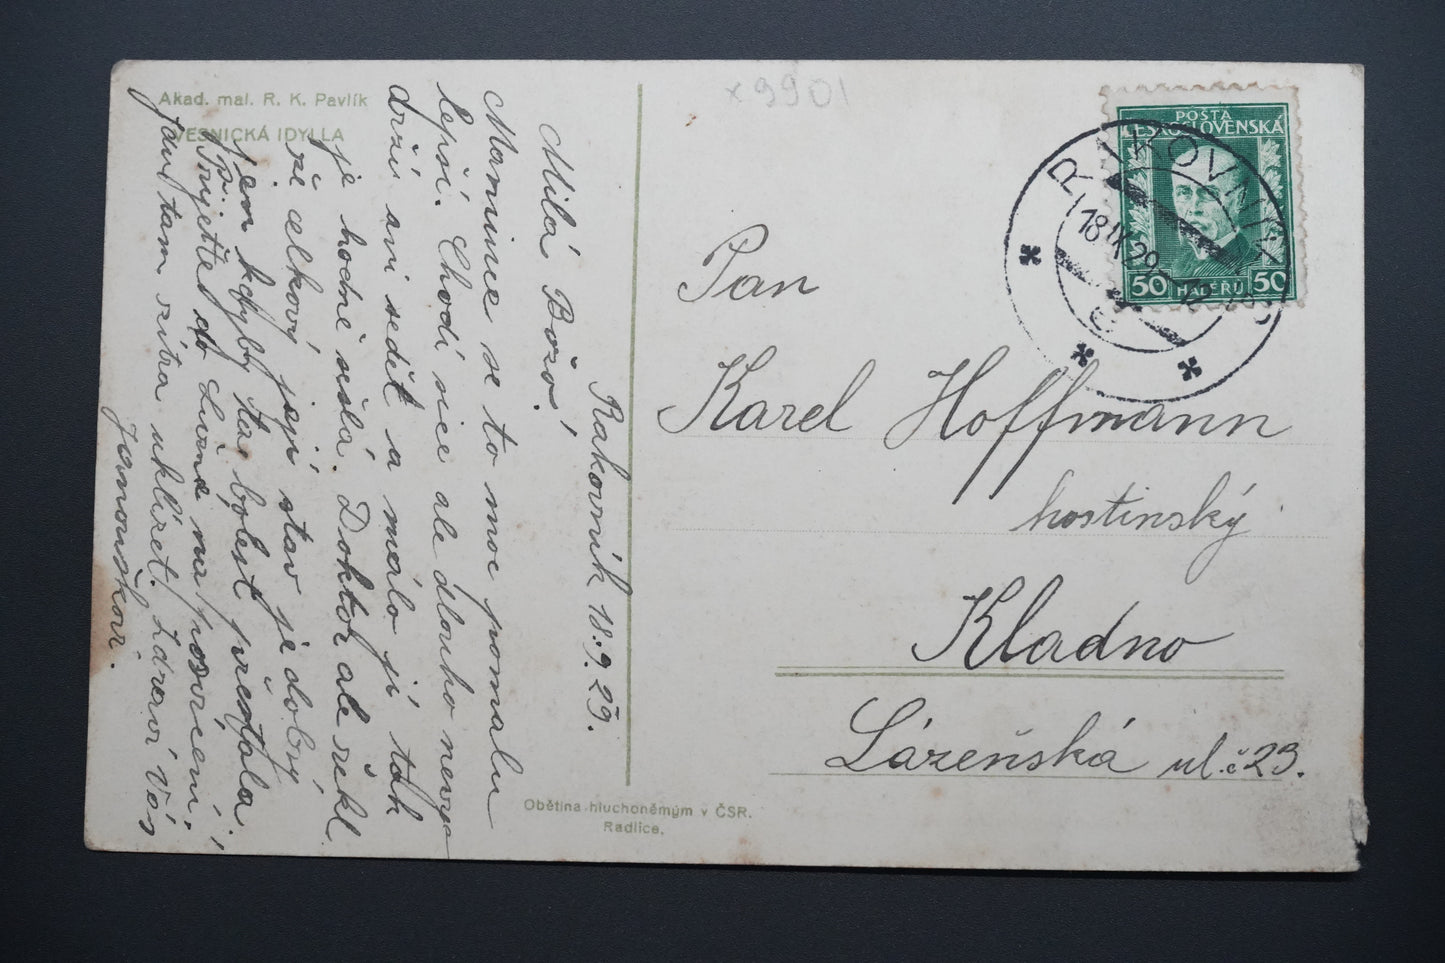 Akad. mal. R. K. Pavlík
VESNICKÁ IDYLLA
x 9901
Rakovník 18.9.29.
Milá Božo!
Mamince se to moc pomalu
lepší. Chodí sice ale dlouho nevy
drží ani sedět a málo jí tak
je hodně sešlá. Doktor ale řekl
že celkový její stav je dobrý
jen kdyby ta bolest přestala.
Přijeďte do na posvícení,
jsou tam zítra uklízet. Zdraví Vás
Janouškovi.
POŠTA
ČESKOSLOVENSKÁ
50 HALÉŘŮ 50
RAKOVNÍK
18.IX.29
Pan
Karel Hoffmann
hostinský
Kladno
Lázeňská ul. č 23.
Obětina hluchoněmým v ČSR.
Radlice.